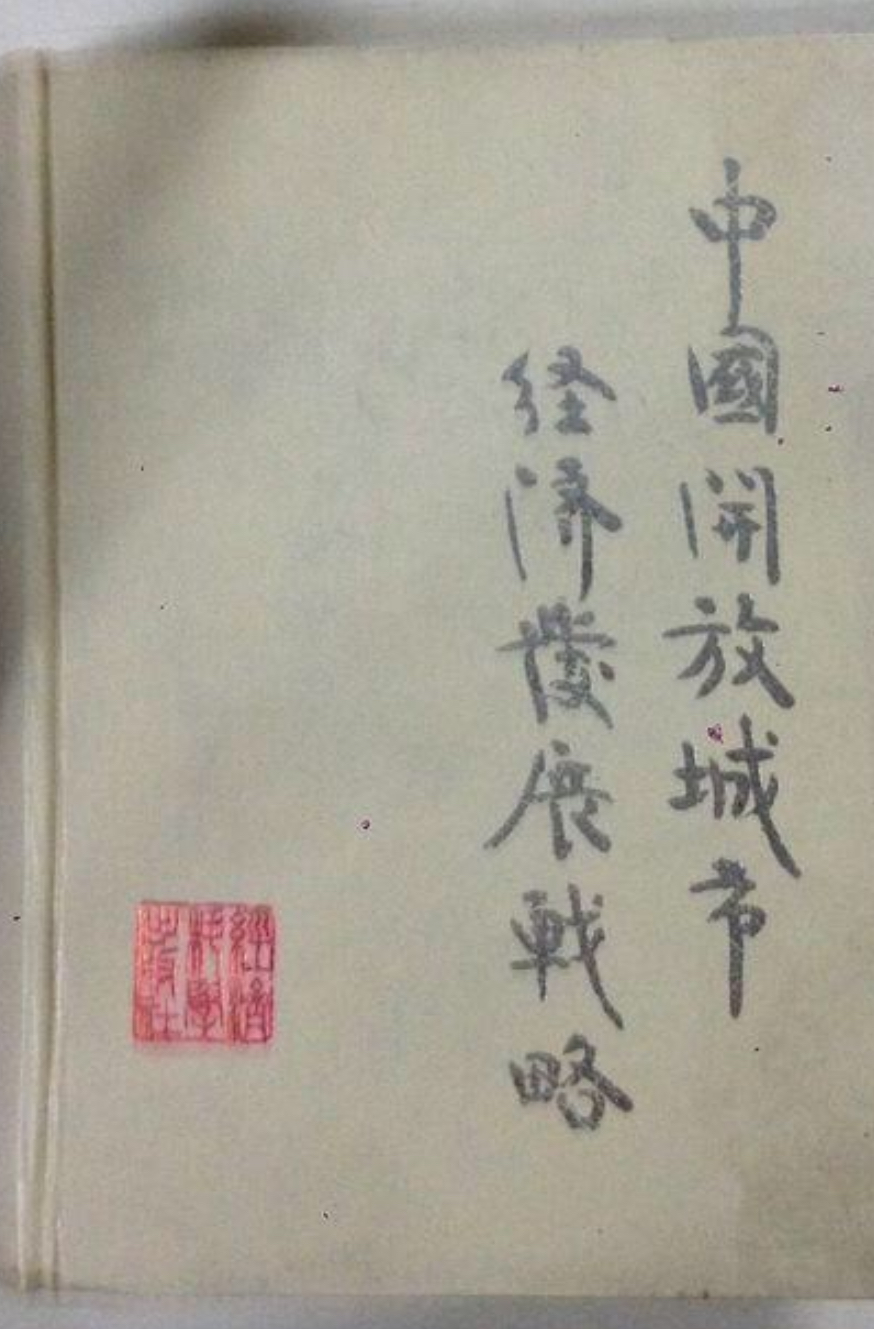 中國開放城市
経济發展戦略
經濟
科學
出版社